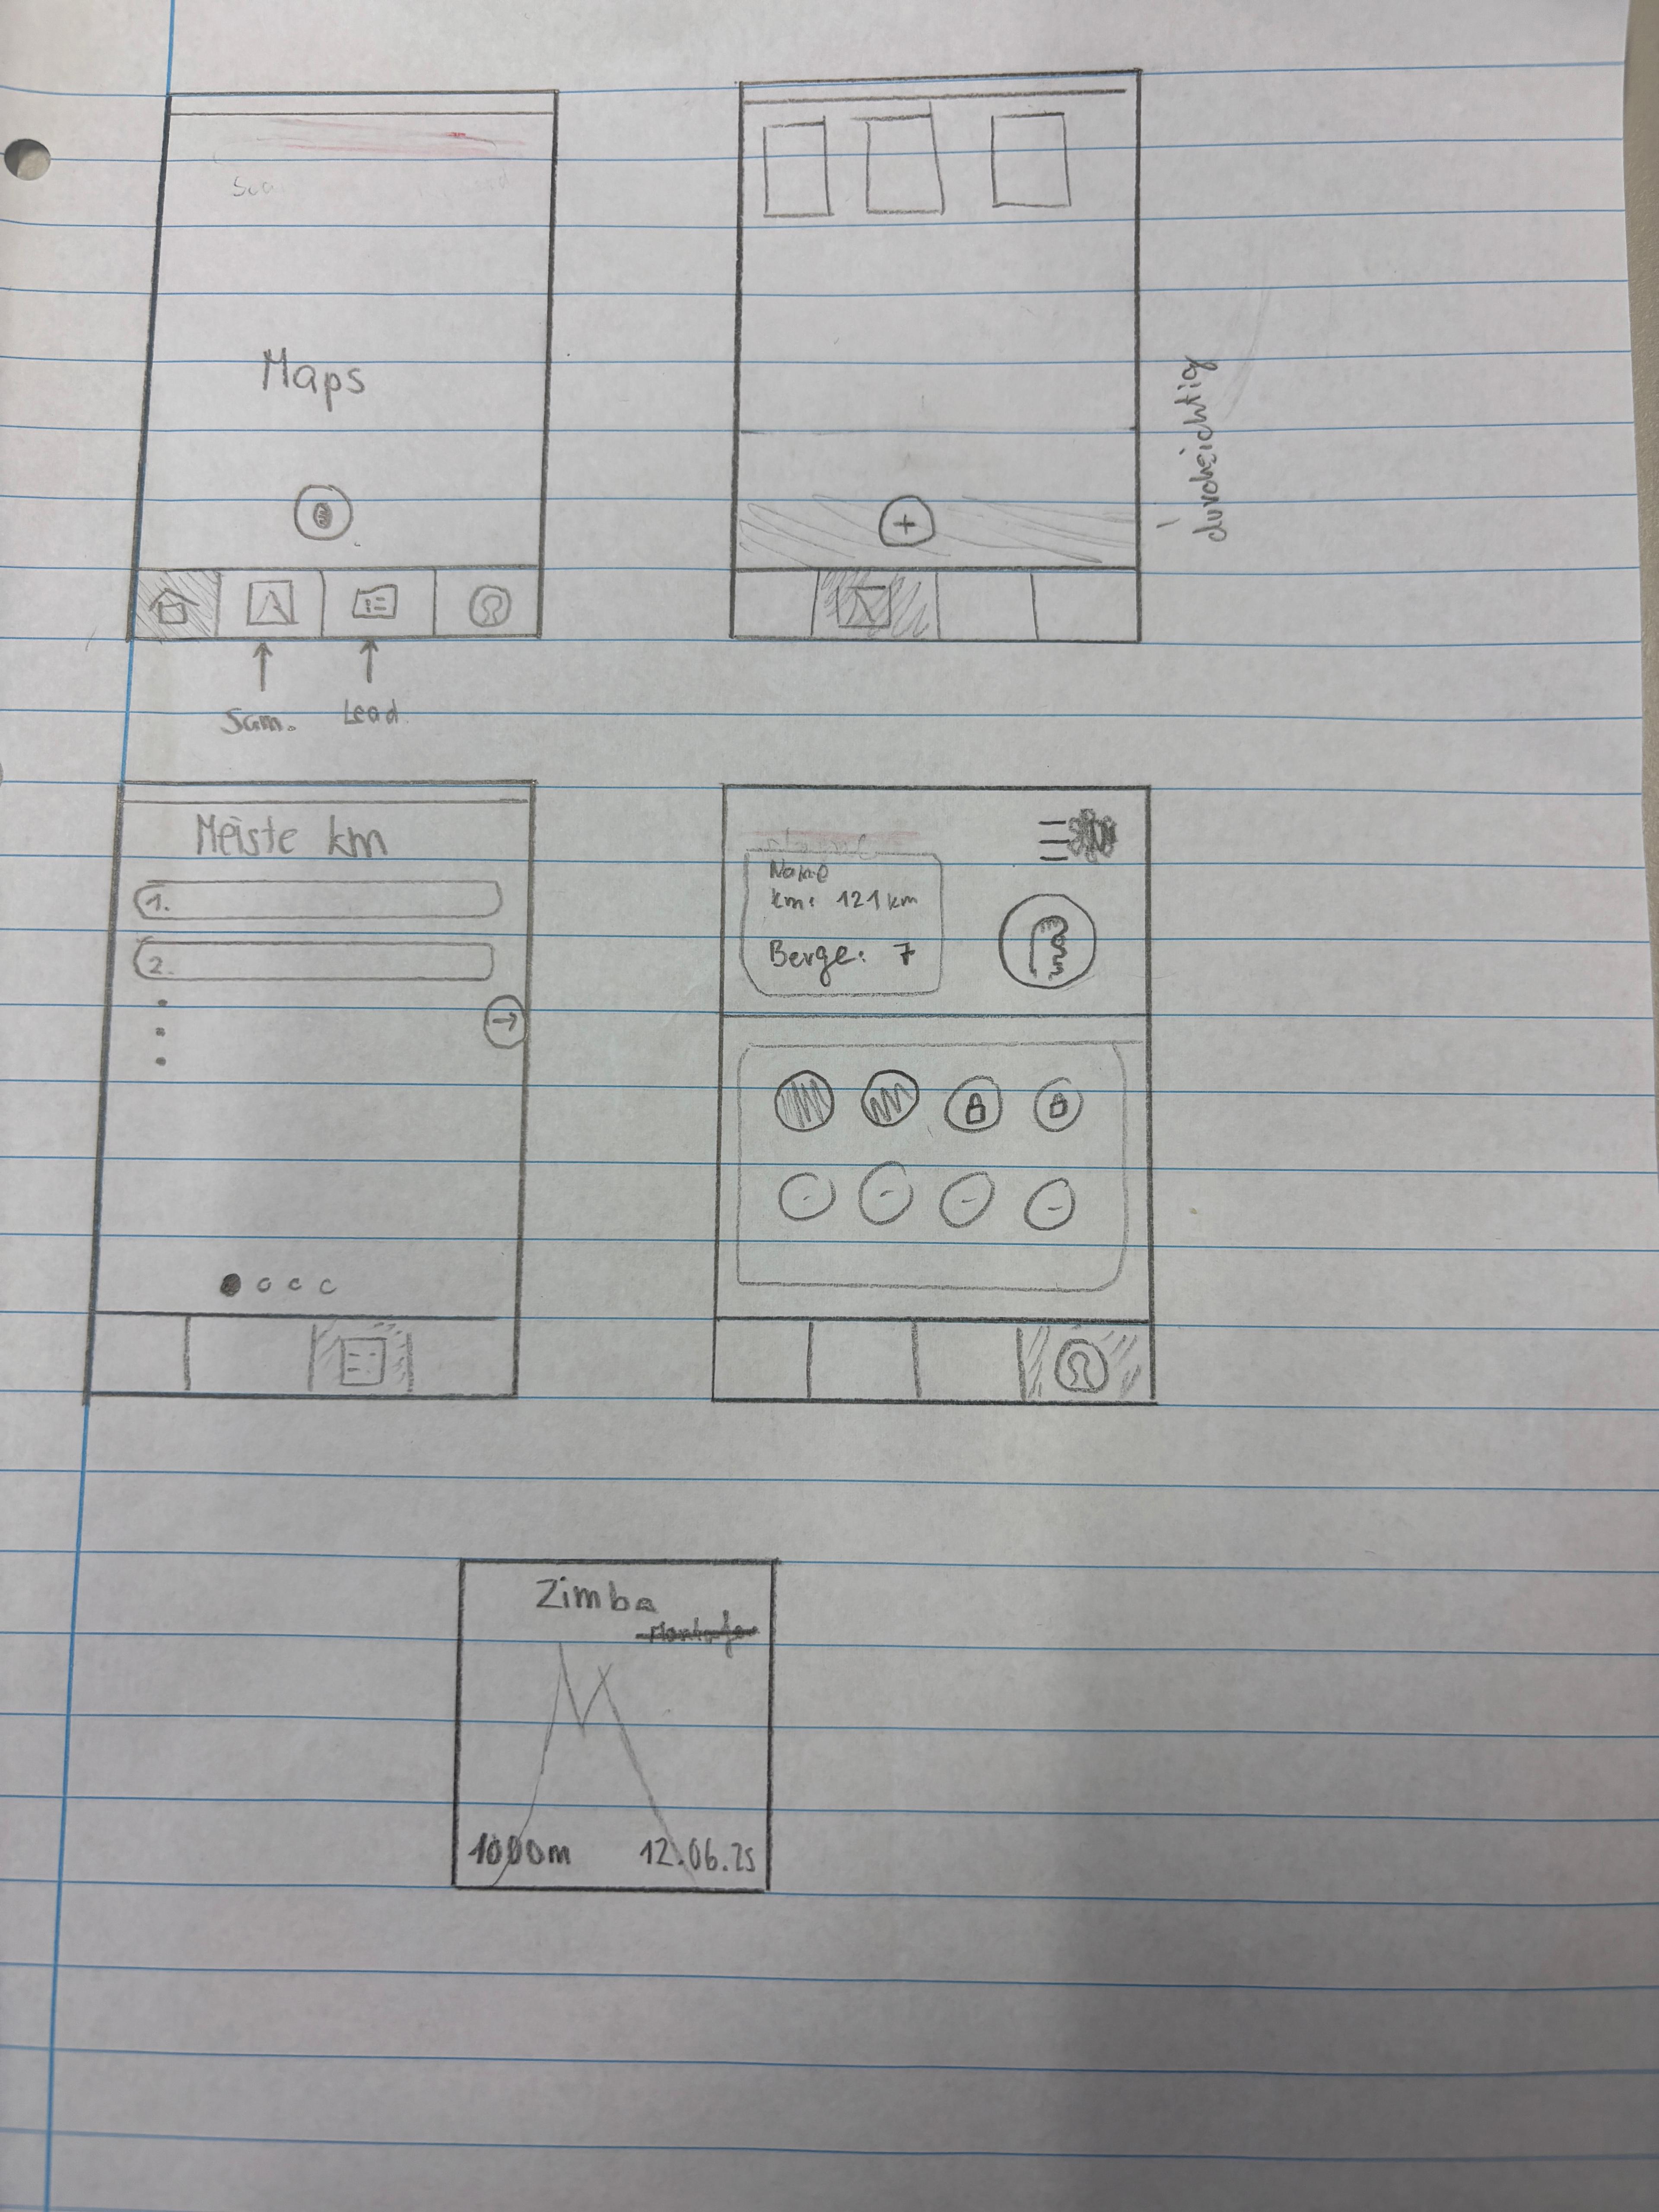 Maps
Sam.
Lead.
durchsichtig
Meiste km
1.
2.
Name
km: 121 km
Berge: 7
Zimba
1000m 12.06.25